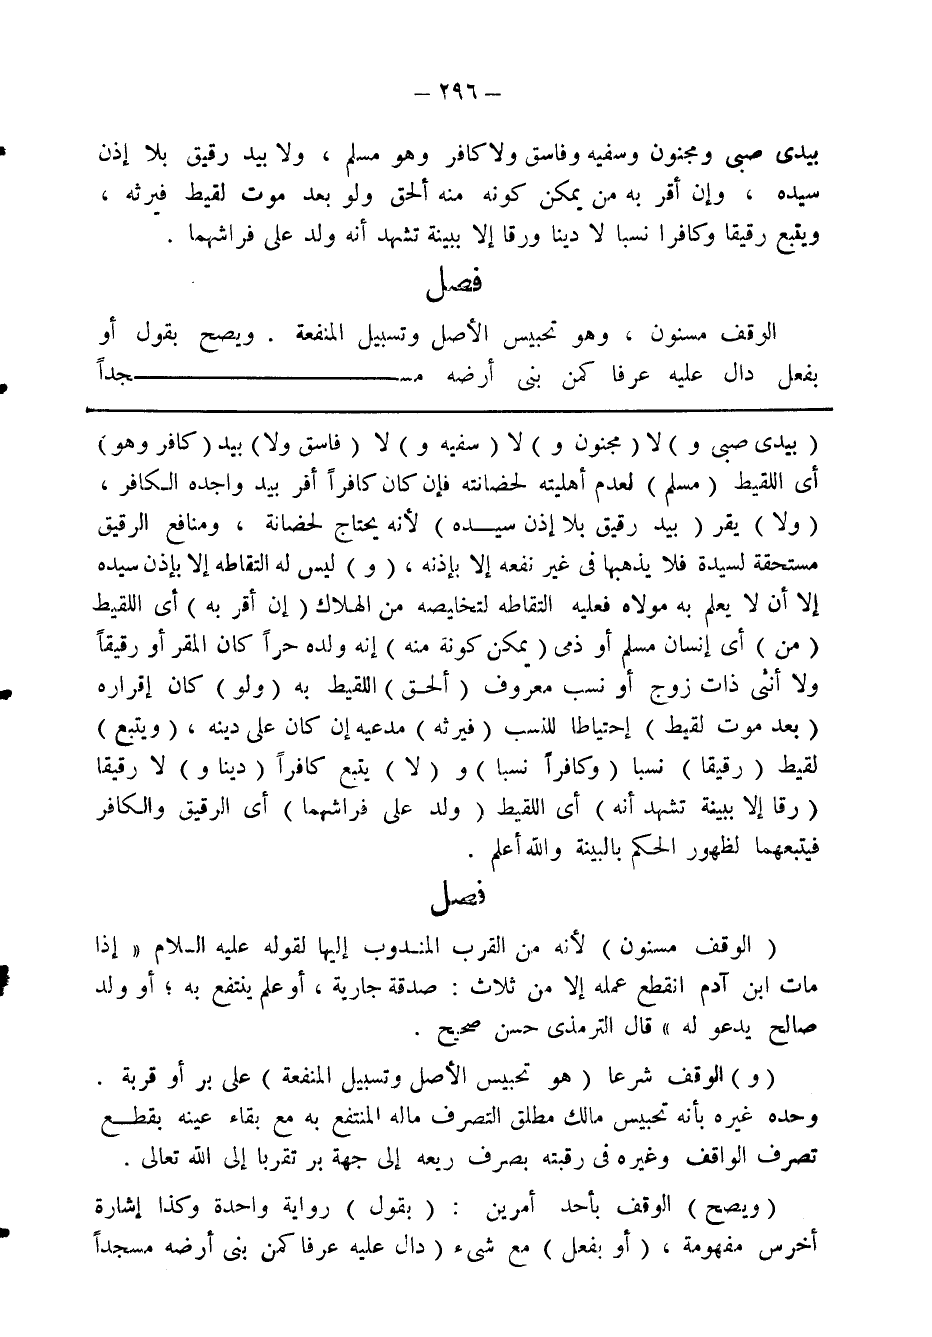 — ٢٩٦ —
بيدى صبى ومجنون وسفيه وفاسق ولاكافر وهو مسلم ، ولا بيد رقيق بلا إذن
سيده ، وإن أقر به من يمكن كونه منه ألحق ولو بعد موت لقيط فيرثه ،
ويتبع رقيقا وكافرا نسبا لا دينا ورقا إلا ببينة تشهد أنه ولد على فراشهما .
فصل
الوقف مسنون ، وهو تحبيس الأصل وتسبيل المنفعة . ويصح بقول أو
بفعل دال عليه عرفا كمن بنى أرضه مســـــــــــجداً
( بيدى صبى و ) لا ( مجنون و ) لا ( سفيه و ) لا ( فاسق ولا ) بيد ( كافر وهو )
أى اللقيط ( مسلم ) لعدم أهليته لحضانته فإن كان كافراً أقر بيد واجده الـكافر ،
( ولا ) يقر ( بيد رقيق بلا إذن سيــده ) لأنه يحتاج لحضانة ، ومنافع الرقيق
مستحقة لسيدة فلا يذهبها فى غير نفعه إلا بإذنه ، ( و ) ليس له التقاطه إلا بإذن سيده
إلا أن لا يعلم به مولاه فعليه التقاطه لتخليصه من الهلاك ( إن أقر به ) أى اللقيط
( من ) أى إنسان مسلم أو ذمى ( يمكن كونة منه ) إنه ولده حراً كان المقر أو رقيقاً
ولا أنثى ذات زوج أو نسب معروف ( ألحـق ) اللقيط به ( ولو ) كان إقراره
( بعد موت لقيط ) إحتياطا للنسب ( فيرثه ) مدعيه إن كان على دينه ، ( ويتبع )
لقيط ( رقيقا ) نسبا ( وكافراً نسبا ) و ( لا ) يتبع كافراً ( دينا و ) لا رقيقا
( رقا إلا ببينة تشهد أنه ) أى اللقيط ( ولد على فراشهما ) أى الرقيق والـكافر
فيتبعهما لظهور الحكم بالبينة والله أعلم .
فصل
( الوقف مسنون ) لأنه من القرب المنـدوب إليها لقوله عليه الـلام « إذا
مات ابن آدم انقطع عمله إلا من ثلاث : صدقة جارية ، أو علم ينتفع به ؛ أو ولد
صالح يدعو له » قال الترمذى حسن صحيح .
( و ) الوقف شرعا ( هو تحبيس الأصل وتسبيل المنفعة ) على بر أو قربة .
وحده غيره بأنه تحبيس مالك مطلق التصرف ماله المنتفع به مع بقاء عينه بقطــع
تصرف الواقف وغيره فى رقبته بصرف ريعه إلى جهة بر تقربا إلى الله تعالى .
( ويصح ) الوقف بأحد أمرين : ( بقول ) رواية واحدة وكذا إشارة
أخرس مفهومة ، ( أو بفعل ) مع شىء ( دال عليه عرفا كمن بنى أرضه مسجداً